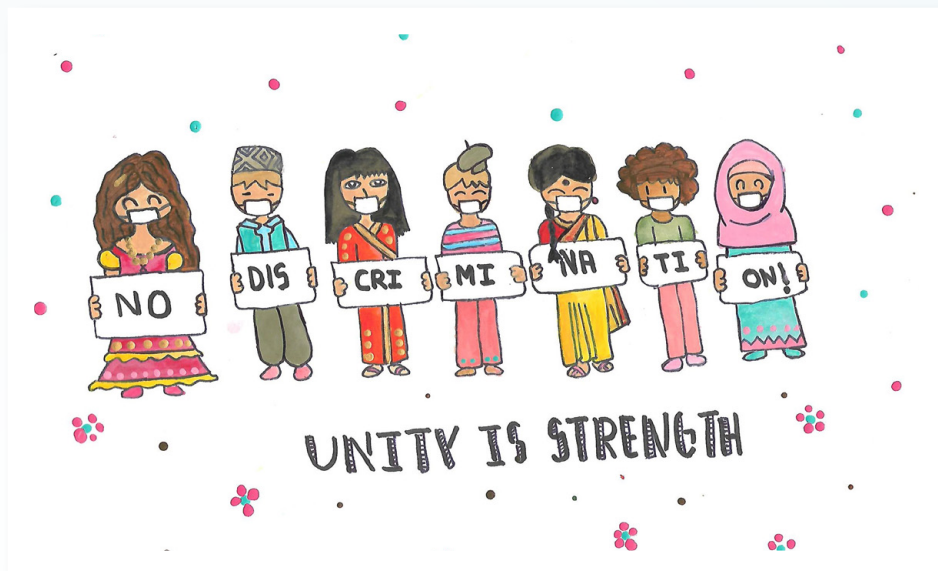 NO DIS CRI MI NA TI ON!
UNITY IS STRENGTH